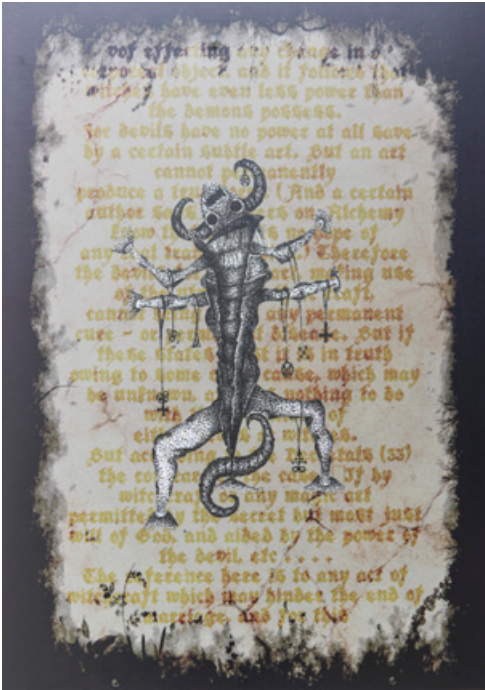 vof effecting any change in a
corporeal object, and it follows that
witches have even less power than
the demons possess.
For devils have no power at all save
by a certain subtle art. But an art
cannot permanently
produce a (And a certain
author on Alchemy
know no hope of
any Therefore
the making use
craft,
any permanent
cure - or disease. But if
these states it is in truth
owing to some cause, which may
be unknown, nothing to do
with of
witches.
But (33)
the case. If by
witchcraft any magic art
permitted by the secret but most just
will of God, and aided by the power of
the devil, etc . . . .
The reference here is to any act of
witchcraft which may hinder the end of
marriage, and for this